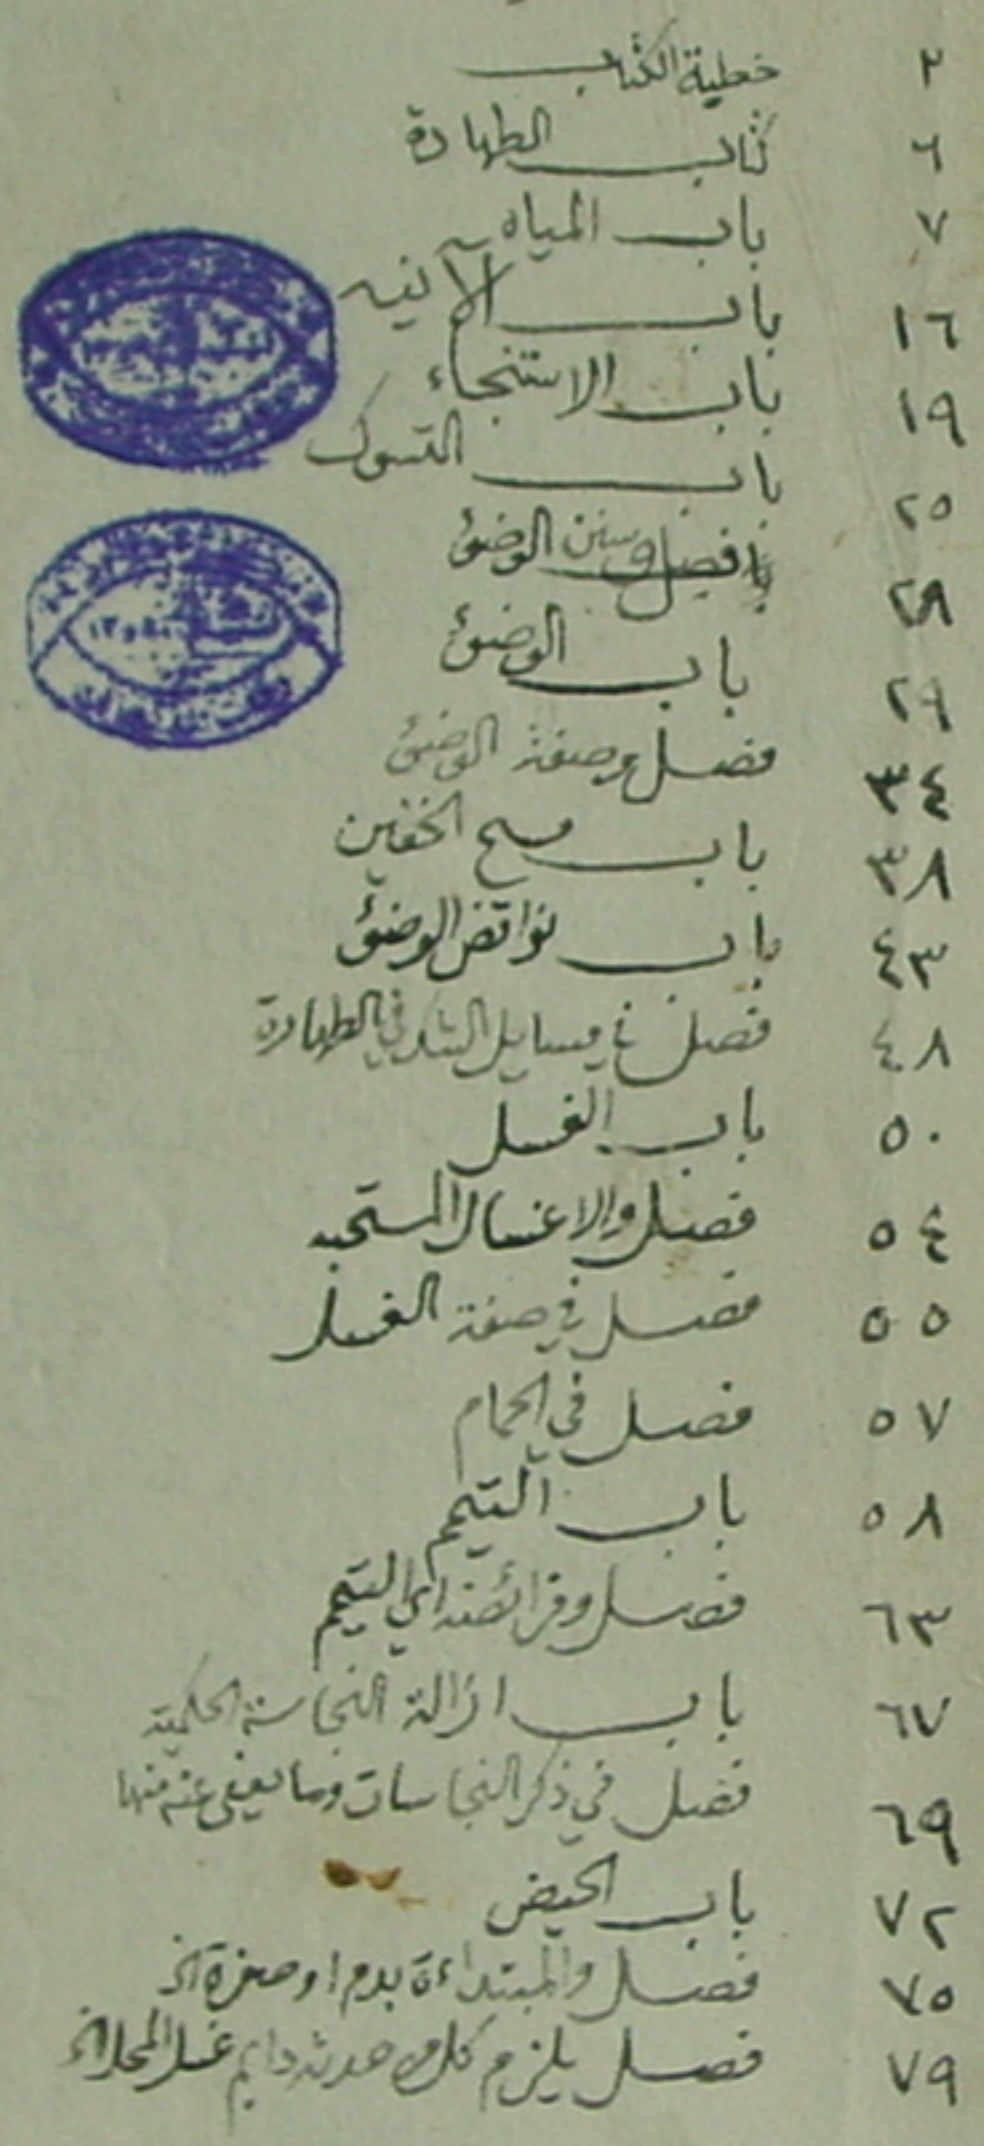 ٢ خطبة الكتاب
٦ كتاب الطهارة
٧ باب المياه
١٦ باب الآنيه
١٩ باب الاستنجاء
٢٥ باب التسوك
٢٨ فصل وسنن الوضؤ
٢٩ باب الوضؤ
٣٤ فصل وصفة الوضؤ
٣٨ باب مسح الخفين
٤٣ باب نواقض الوضؤ
٤٨ فصل في مسايل الشك في الطهارة
٥٠ باب الغسل
٥٤ فصل والاغسال المستحبه
٥٥ فصل في صفة الغسل
٥٧ فصل في الحمام
٥٨ باب التيمم
٦٣ فصل وفرائضه اي التيمم
٦٧ باب ازالة النجاسة الحكمية
٦٩ فصل في ذكر النجاسات وما يعفى عنه منها
٧٢ باب الحيض
٧٥ فصل والمبتداءة بدم او صفرة الخ
٧٩ فصل يلزم كل من حدثه دايم غسل المحل الخ